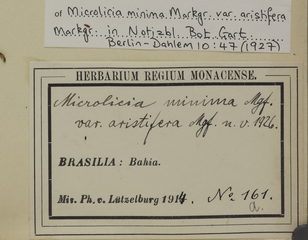 of Microlicia minima Markgr. var. aristifera
Markgr. in Notizbl. Bot. Gart.
Berlin-Dahlem 10:47 (1927)
HERBARIUM REGIUM MONACENSE.
Microlicia minima Mgf.
var. aristifera Mgf. n. v. 1926.
BRASILIA: Bahia.
Mis. Ph. v. Lützelburg 1914. No 161.
a.